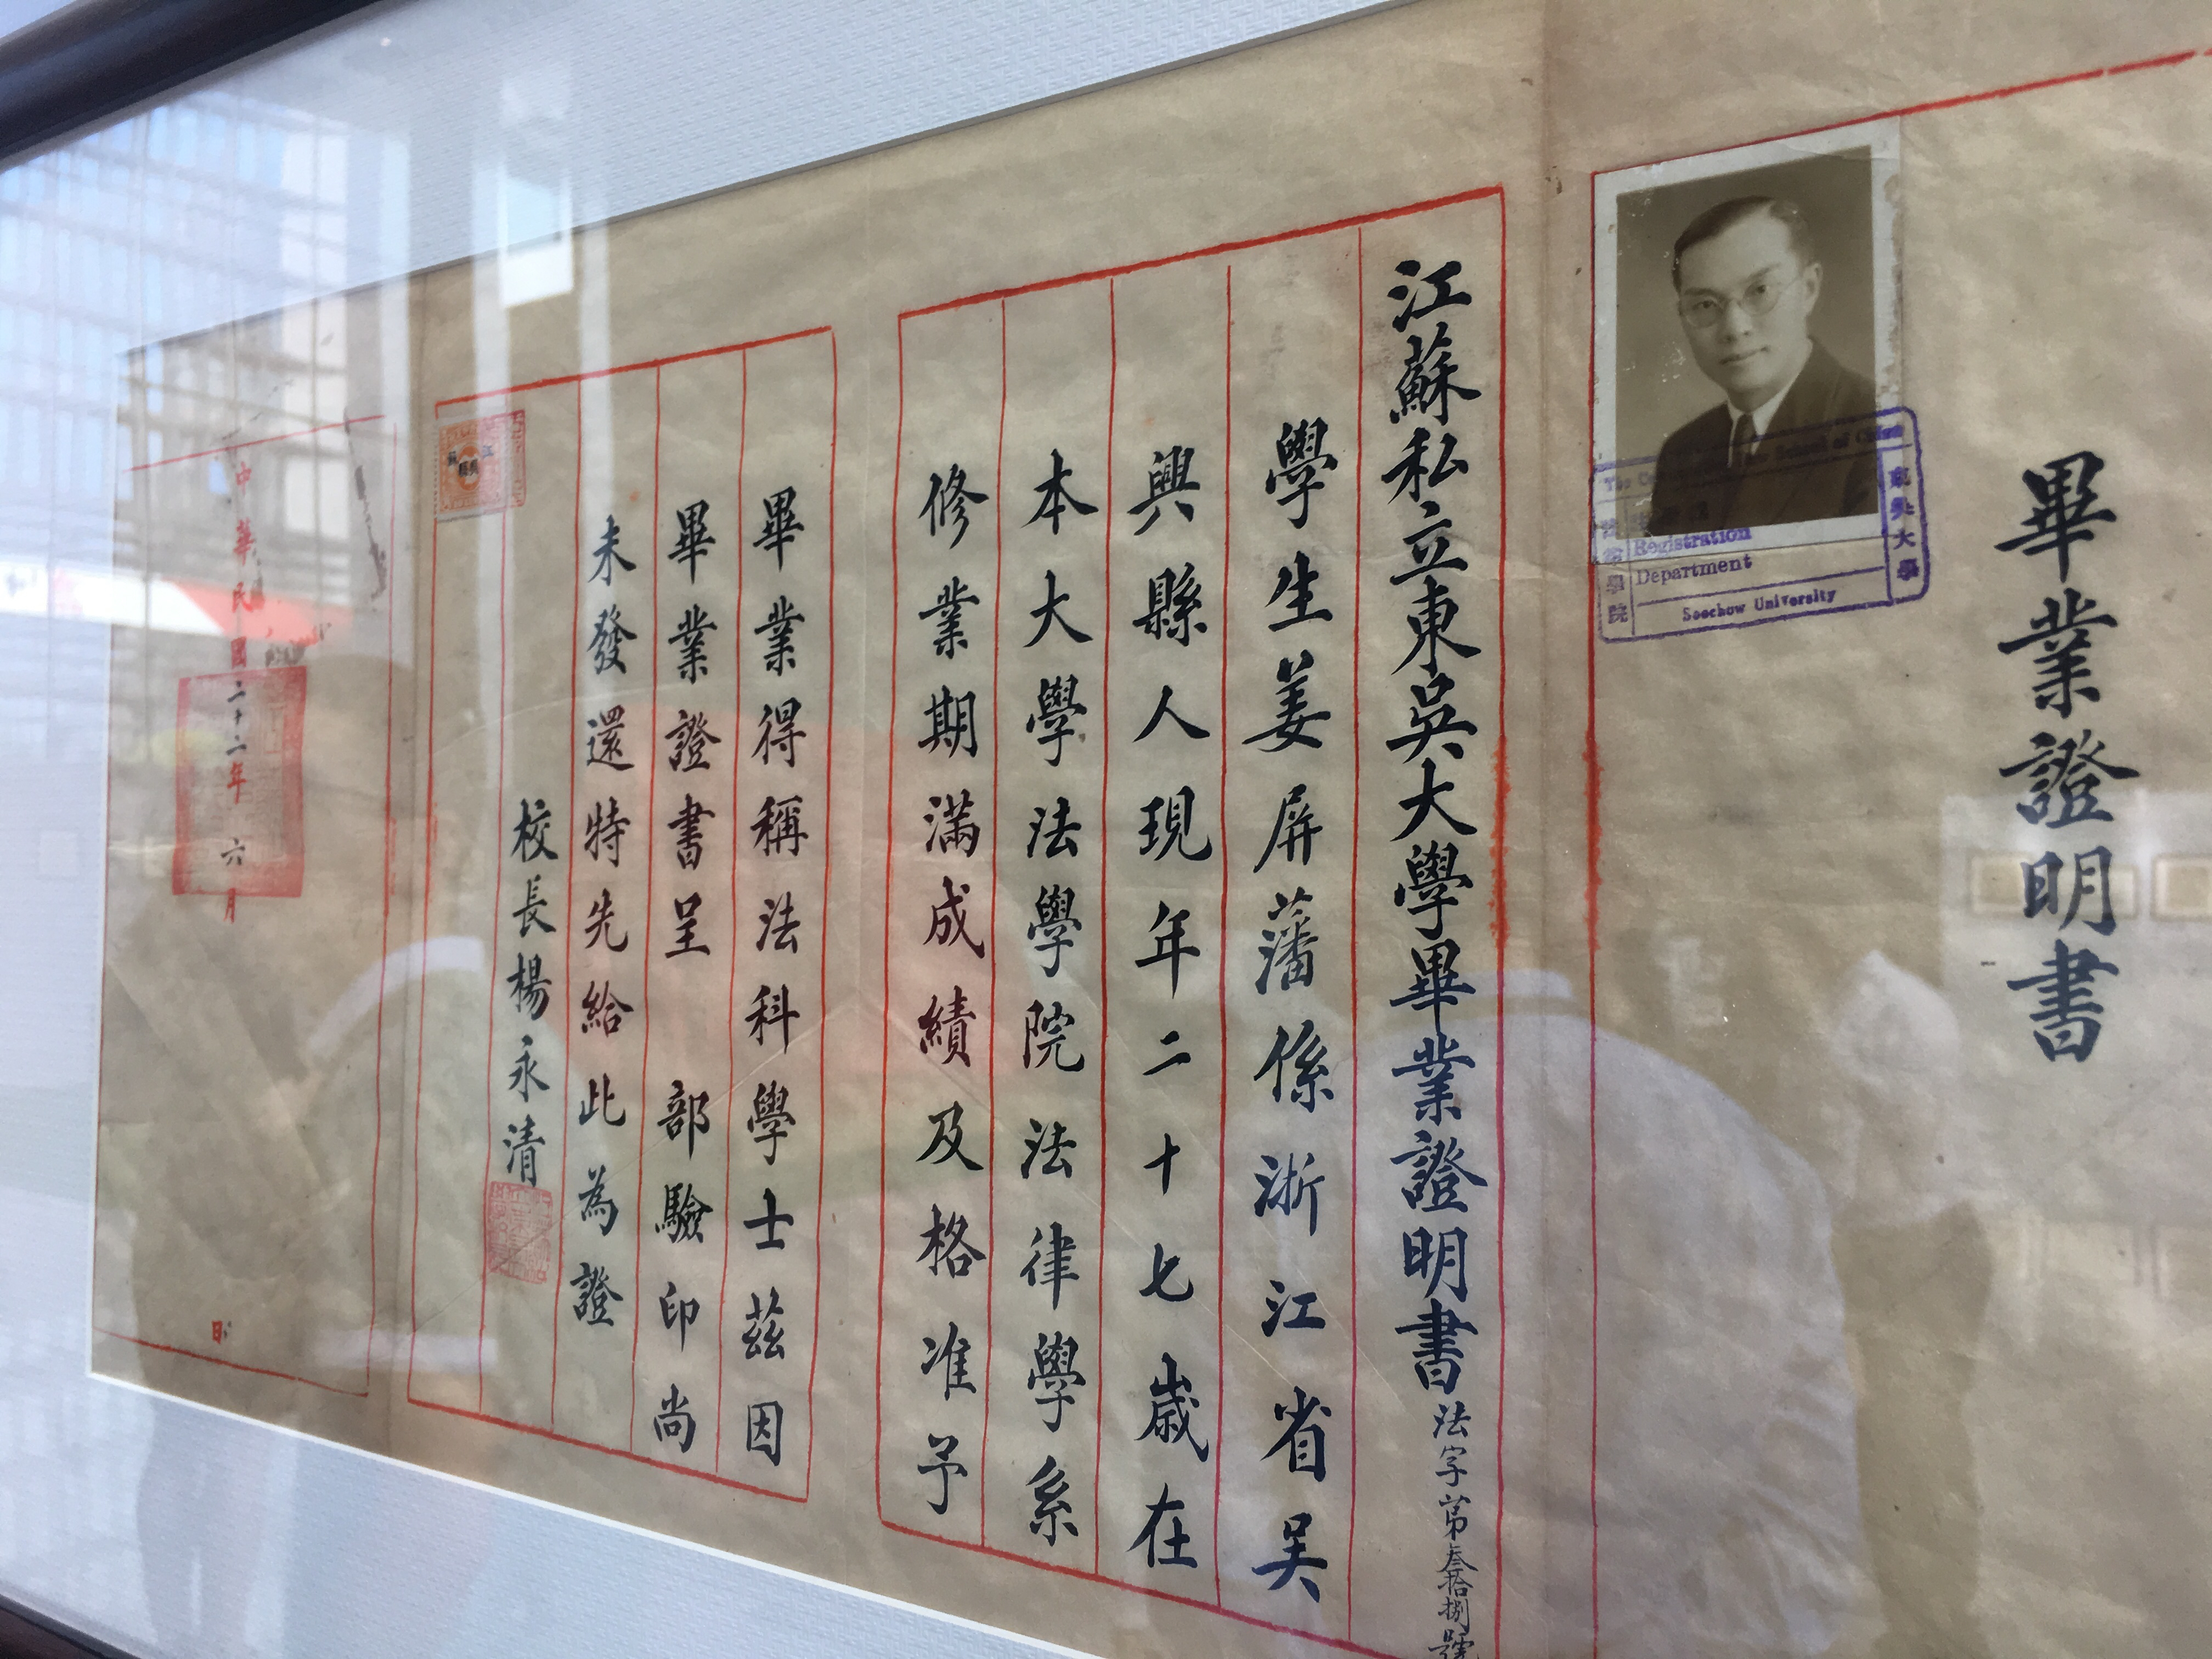 畢業證明書
東吳大學
Registration
Department
Soochow University
學院
江蘇私立東吳大學畢業證明書法字第叁拾捌號
學生姜屏藩係浙江省吳
興縣人現年二十七歲在
本大學法學院法律學系
修業期滿成績及格准予
畢業得稱法科學士茲因
畢業證書呈 部驗印尚
未發還特先給此為證
校長楊永清
中華民國二十二年 六月 日